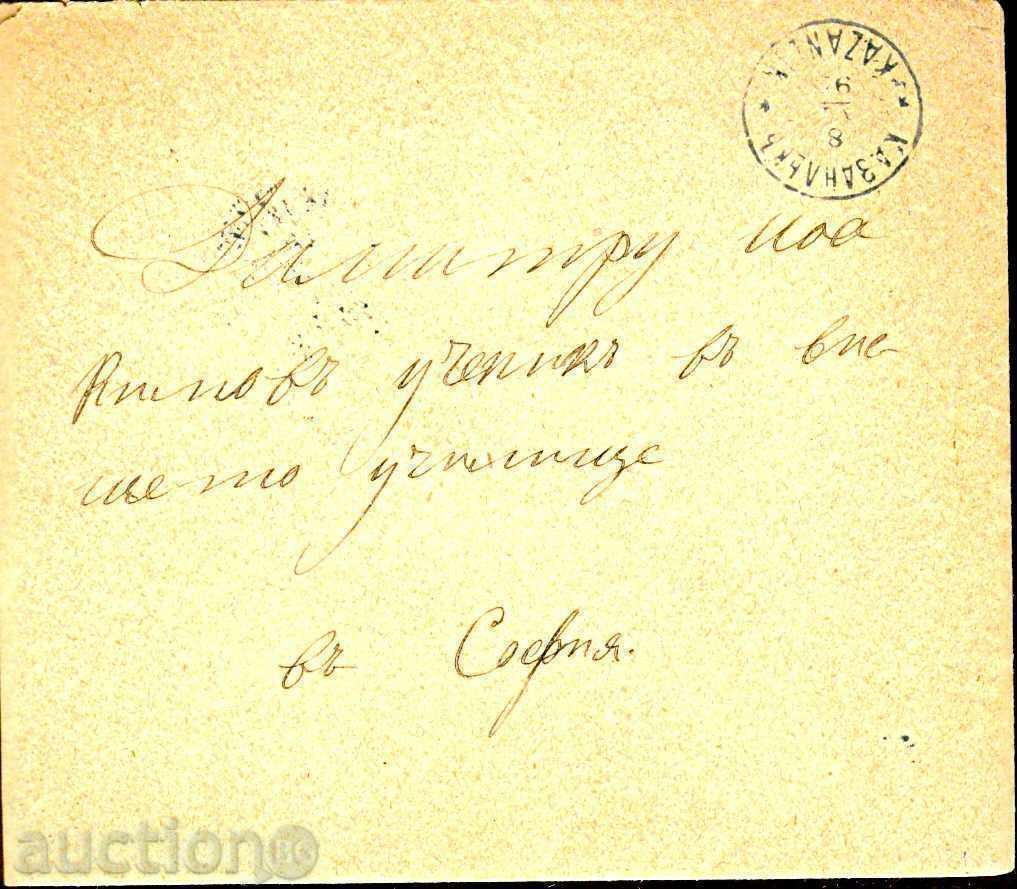 КАЗАНЛЪКЪ
KAZANLIK
Димитру Иоа
кимовъ ученикъ въ вис
шето училище
въ София.
auction.bg